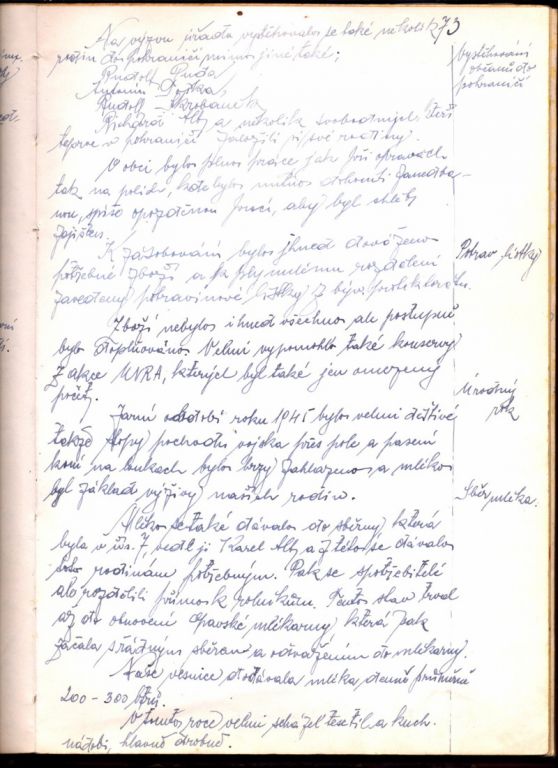 73
Na výzvu úřadů vystěhovalo se také několik
rodin do pohraničí mimo jiné také:
Rudolf Ruda
Antonín Doska
Rudolf Skrobanek
Richard Alt a několik svobodných, kteří
teprve v pohraničí založili si své rodiny.
V obci bylo plno práce jak při opravách
tak na polích, kde bylo nutno dohonit zanedba-
nou, spíše opozděnou prací, aby byl chléb
zajištěn.
K zásobování bylo ihned dováženo
potřebné zboží a k plynulému rozdělení
zavedeny potravinové lístky z býv. protektorátu.
Zboží nebylo ihned všechno ale postupně
bylo doplňováno. Velmi vypomohly také konservy
z akce UNRA, kterých byl také jen omezený
počet.
Jarní období roku 1945 bylo velmi deštivé
takže stopy pochodu vojska přes pole a pasení
koní na loukách bylo brzy zahlazeno a mléko
byl základ výživy našich rodin.
Mléko se také dávalo do sběrny která
byla v čís. 7, vedl ji Karel Alt a z této se dávalo
rodinám potřebným. Pak se spotřebitelé
rozdělili přímo k rolníkům. Tento stav trval
až do obnovení Opavské mlékárny která pak
začala s řádným sběrem a odvážením do mlékárny.
Naše vesnice dodávala mléka denně průměrně
200 - 300 litrů.
V tomto roce velmi scházel textil a kuch.
nádobí, hlavně drobné.
Vystěhování
občanů do
pohraničí
Potrav. lístky
Úrodný
rok
Sběr mléka.